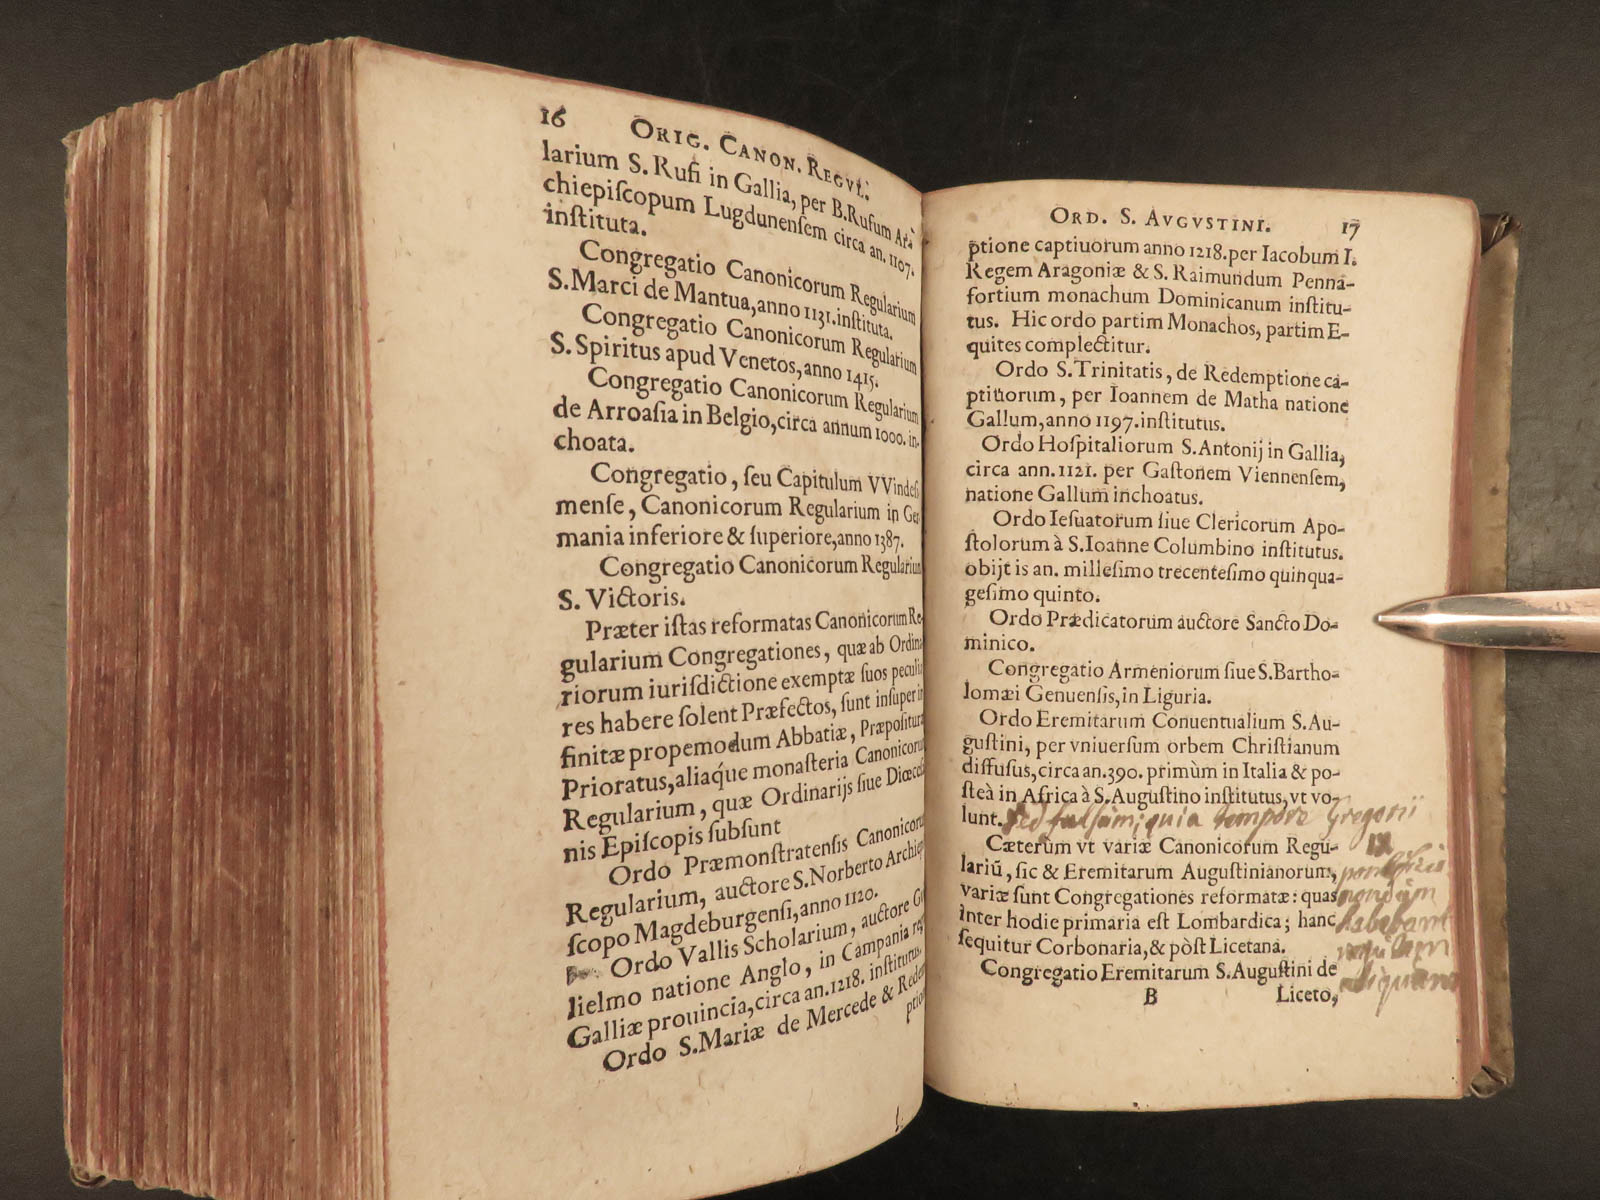 16 ORIG. CANON. REGVL.
larium S. Rufi in Gallia, per B. Rufum Ar-
chiepiſcopum Lugdunenſem circa an. 1107.
inſtituta.
Congregatio Canonicorum Regularium
S. Marci de Mantua, anno 1131. inſtituta.
Congregatio Canonicorum Regularium
S. Spiritus apud Venetos, anno 1415.
Congregatio Canonicorum Regularium
de Arroaſia in Belgio, circa annum 1000. in-
choata.
Congregatio, ſeu Capitulum VVindeſ-
menſe, Canonicorum Regularium in Ger-
mania inferiore & ſuperiore, anno 1387.
Congregatio Canonicorum Regularium
S. Victoris.
Præter iſtas reformatas Canonicorum Re-
gularium Congregationes, quæ ab Ordina
riorum iuriſdictione exemptæ ſuos peculia
res habere ſolent Præfectos, ſunt inſuper in
finitæ propemodum Abbatiæ, Præpoſituræ
Prioratus, aliaq́ue monaſteria Canonicorum
Regularium, quæ Ordinarijs ſiue Diœceſa
nis Epiſcopis ſubſunt
Ordo Præmonſtratenſis Canonicoru
Regularium, auctore S. Norberto Archiep
ſcopo Magdeburgenſi, anno 1120.
Ordo Vallis Scholarium, auctore Gu
lielmo natione Anglo, in Campania reg
Galliæ prouincia, circa an. 1218. inſtitutus.
Ordo S. Mariæ de Mercede & Redem
ptio
ORD. S. AVGVSTINI. 17
ptione captiuorum anno 1218. per Iacobum I.
Regem Aragoniæ & S. Raimundum Penna-
fortium monachum Dominicanum inſtitu-
tus. Hic ordo partim Monachos, partim E-
quites complectitur.
Ordo S. Trinitatis, de Redemptione ca-
ptiuorum, per Ioannem de Matha natione
Gallum, anno 1197. inſtitutus.
Ordo Hoſpitaliorum S. Antonij in Gallia,
circa ann. 1121. per Gaſtonem Viennenſem,
natione Gallum inchoatus.
Ordo Ieſuatorum ſiue Clericorum Apo-
ſtolorum à S. Ioanne Columbino inſtitutus.
obijt is an. milleſimo trecenteſimo quinqua-
geſimo quinto.
Ordo Prædicatorum auctore Sancto Do-
minico.
Congregatio Armeniorum ſiue S. Bartho-
lomæi Genuenſis, in Liguria.
Ordo Eremitarum Conuentualium S. Au-
guſtini, per vniuerſum orbem Chriſtianum
diffuſus, circa an. 390. primùm in Italia & po-
ſteà in Africa à S. Auguſtino inſtitutus, vt vo-
lunt. sed falsum; quia tempore Gregorii
IX
Cæterùm vt variæ Canonicorum Regu-
lariū, ſic & Eremitarum Auguſtinianorum, pontificis
variæ ſunt Congregationes reformatæ: quas nondum
inter hodie primaria eſt Lombardica; hanc habebant
ſequitur Corbonaria, & pòſt Licetana.
Congregatio Eremitarum S. Auguſtini de aliquam
B Liceto,